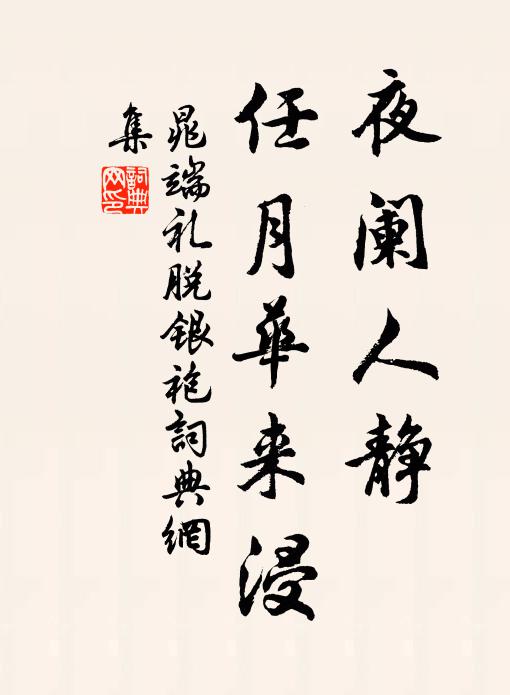 夜阑人静
任月華来浸
晁端礼脱银袍詞典網
集
詞典网印